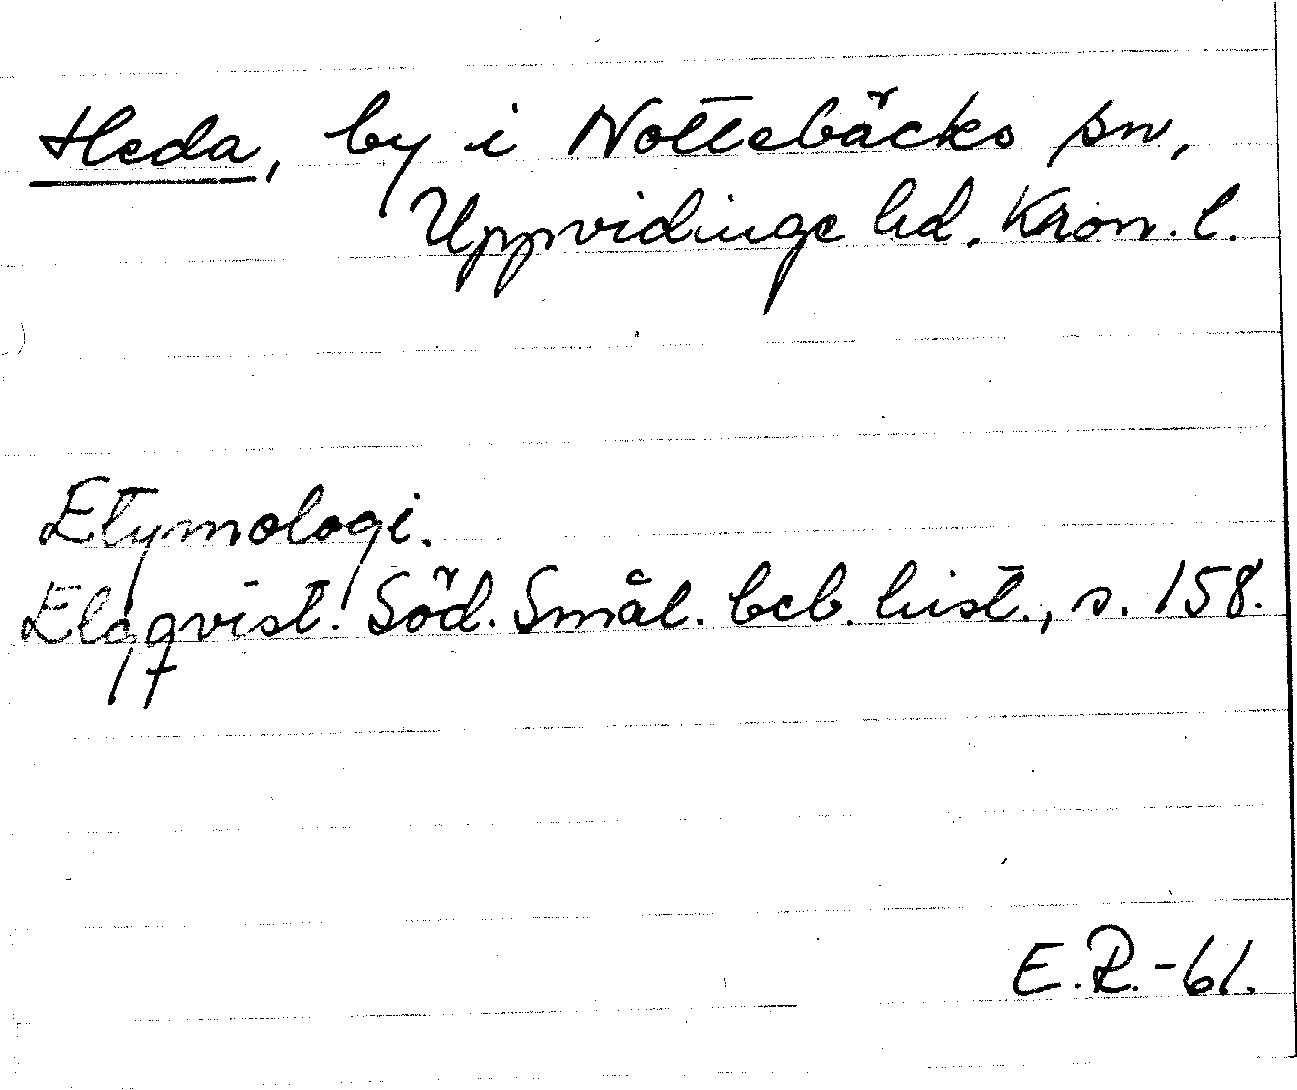 Heda, by i Nottebäcks sn,
Uppvidinge hd. Kron. l.
Etymologi.
Elgqvist. Söd. Smål. beb. hist., s. 158.
E.R.-61.